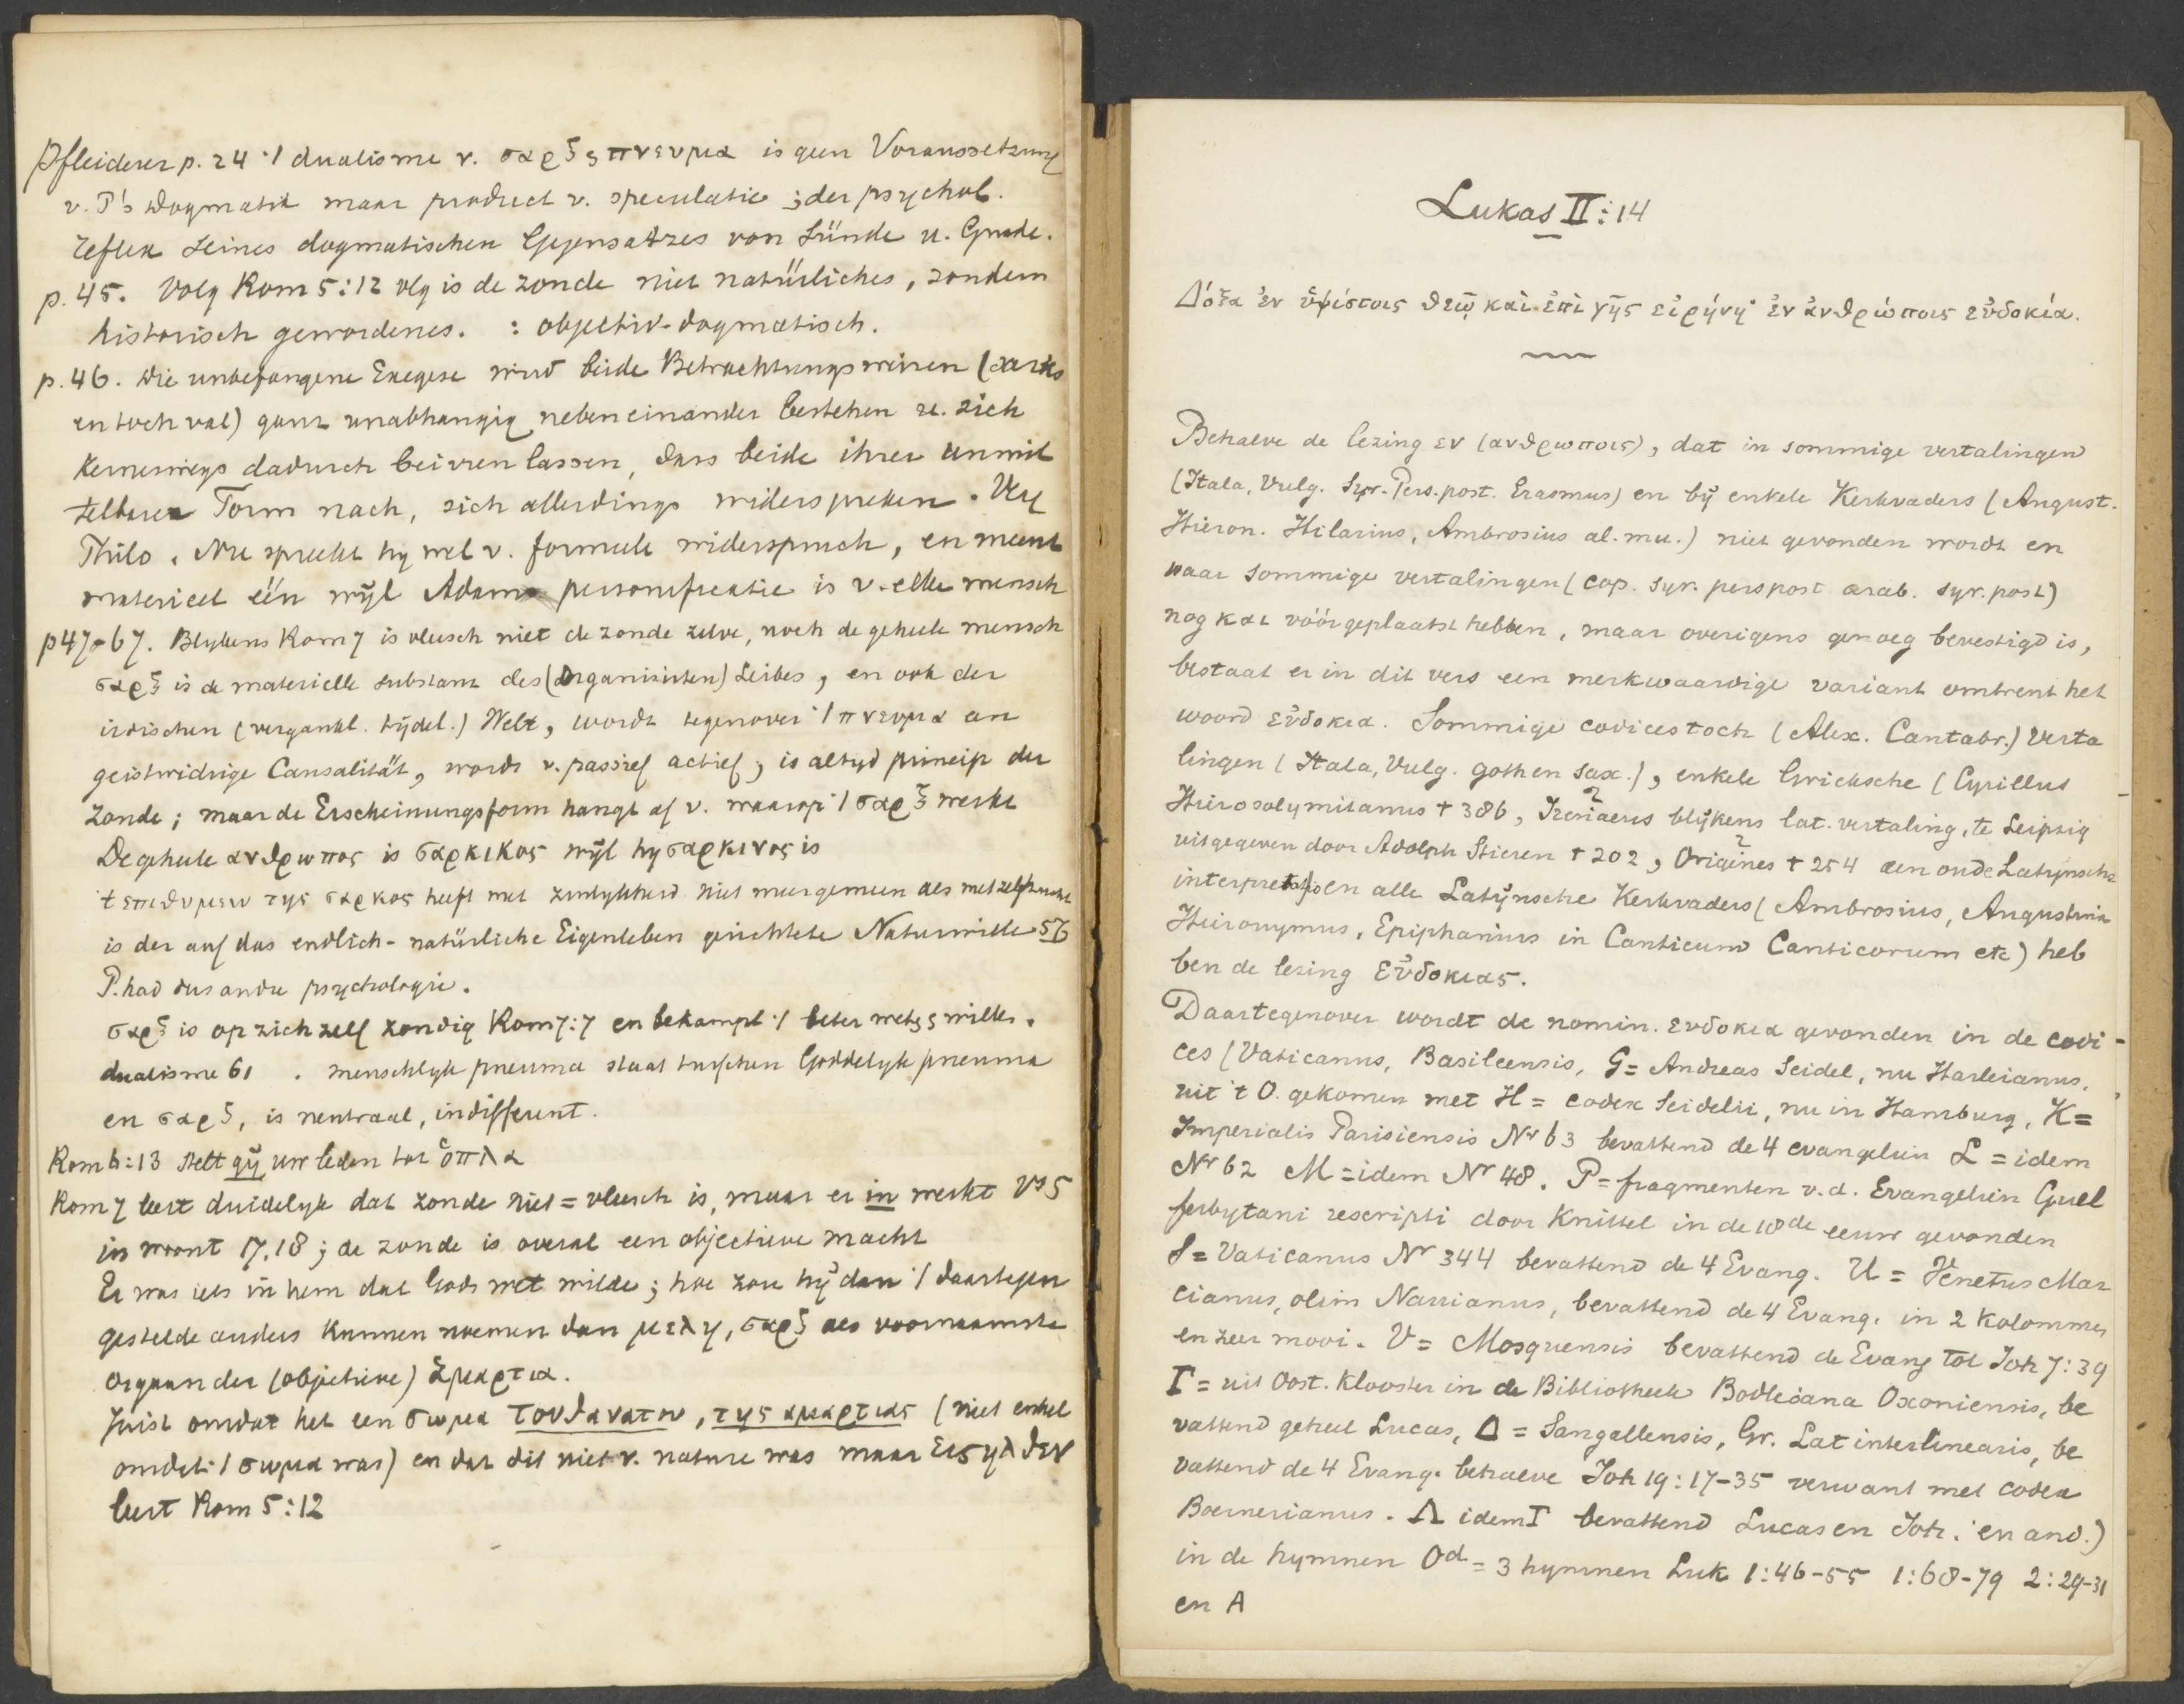 Pfleiderer p. 24 '/ dualisme v. σαρξ ς πνευμα is geen Voraussetzung
v. P's Dogmatik maar product v. speculatie ; der psychol.
reflex seines dogmatischen Gegensatzes von Sünde u. Gnade.
p. 45. Volg Rom 5:12 vlg is de zonde niet natürliches, sondern
historisch gewordenes. : objectiv-dogmatisch.
p. 46. Die unbefangene Exegese wird beide Betrachtungsweisen (sarks
en toch val) ganz unabhangig nebeneinander bestehen u. sich
keineswegs dadurch beirren lassen, dass beide ihrer unmit
telbaren Form nach, sich allerdings widerspreken. Vlg
Thilo. Nu spreekt hy wel v. formeele widerspruch, en meent
materieel één wyl Adam personificatie is v. elke mensch
p 47-67. Blykens Rom 7 is vleesch niet de zonde zelve, noch de geheele mensch
σαρξ is de materielle substanz des (organisirten) Leibes, en ook der
irdischen (vergankl. tydel.) Welt, wordt tegenover '/ πνευμα an
geistwidrige Causalität, wordt v. passief actief, is altyd princip der
zonde; maar de Erscheinungsform hangt af v. waarop '/ σαρξ werkt
De geheele ανθρωπος is σαρκικος wyl hy σαρκινος is
't επιθυμειν της σαρκος heeft met zinlykheid niet meer gemeen als met zelfzucht
is der auf das endlich-natürliche Eigenleben gerichtete Naturwille 56
P. had dus andre psychologie.
σαρξ is op zich zelf zondig Rom 7:7 en bekampt '/ beter weten ς willen.
dualisme 61 . menschlyk pneuma staat tusschen Goddelyk pneuma
en σαρξ, is neutraal, indifferent.
Rom 6:13 stelt gij uw leden tot ὁπλα
Rom 7 leert duidelyk dat zonde niet = vleesch is, maar er in werkt vs 5
in woont 17.18; de zonde is overal een objectieve macht
Er was iets in hem dat Gods wet wilde; hoe zou hij dan '/ daartegen
gestelde anders kunnen noemen dan μελη, σαρξ als voornaamste
orgaan der (objectieve) ἁμαρτια.
Juist omdat het een σωμα του θανατου, της αμαρτιας (niet enkel
omdat '/ σωμα was) en dat dit niet v. nature was maar εισηλθεν
leert Rom 5:12
Lukas II:14
Δόξα ἐν ὑψίστοις θεῷ καὶ ἐπὶ γῆς εἰρήνη ἐν ἀνθρώποις εὐδοκία.
Behalve de lezing εν (ανθρωποις), dat in sommige vertalingen
(Itala, Vulg. Syr. Pers. post. Erasmus) en bij enkele Kerkvaders (August.
Hieron. Hilarius, Ambrosius al. mu.) niet gevonden wordt en
waar sommige vertalingen (cop. syr. pers post arab. syr. post)
nog και vóórgeplaatst hebben, maar overigens genoeg bevestigd is,
bestaat er in dit vers een merkwaardige variant omtrent het
woord εὐδοκια. Sommige codices toch (Alex. Cantabr.) verta
lingen (Itala, Vulg. goth en sax.), enkele Grieksche (Cyrillus
Hierosolymitanus † 386, Irenaeus blijkens lat. vertaling, te Leipzig
uitgegeven door Adolph Stieren † 202, Origines † 254 den oude Latynsche
interpretatio en alle Latijnsche Kerkvaders (Ambrosius, Augustinus
Hieronymus, Epiphanius in Canticum Canticorum etc) heb
ben de lezing εὐδοκιας.
Daartegenover wordt de nomin. ευδοκια gevonden in de codi-
ces (Vaticanus, Basileensis, G = Andreas Seidel, nu Harleianus,
uit 't O. gekomen met H = codex Seidelii, nu in Hamburg, K =
Imperialis Parisiensis Nr 63 bevattend de 4 evangeliën L = idem
Nr 62 M = idem Nr 48. P = fragmenten v.d. Evangeliën Guel
ferbytani rescripti door Knittel in de 18de eeuw gevonden
S = Vaticanus Nr 344 bevattend de 4 Evang. U = Venetus Mar
cianus, olim Nanianus, bevattend de 4 Evang. in 2 kolommen
en zeer mooi. V = Mosquensis bevattend de Evang tot Joh 7:39
Γ = uit Oost. Klooster in de Bibliotheek Bodleiana Oxoniensis, be
vattend geheel Lucas, Δ = Sangallensis, Gr. Lat interlinearis, be
vattend de 4 Evang. behalve Joh 19:17-35 verwant met codex
Boernerianus. Λ idem Γ bevattend Lucas en Joh. en and.)
in de hymnen Od = 3 hymnen Luk 1:46-55 1:68-79 2:29-31
en A